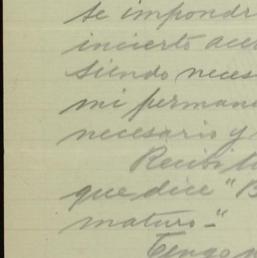 se impondr
incierto ace
siendo neces
mi perman
necesario y
Recibi l
que dice " B
maturo-"
Tengo